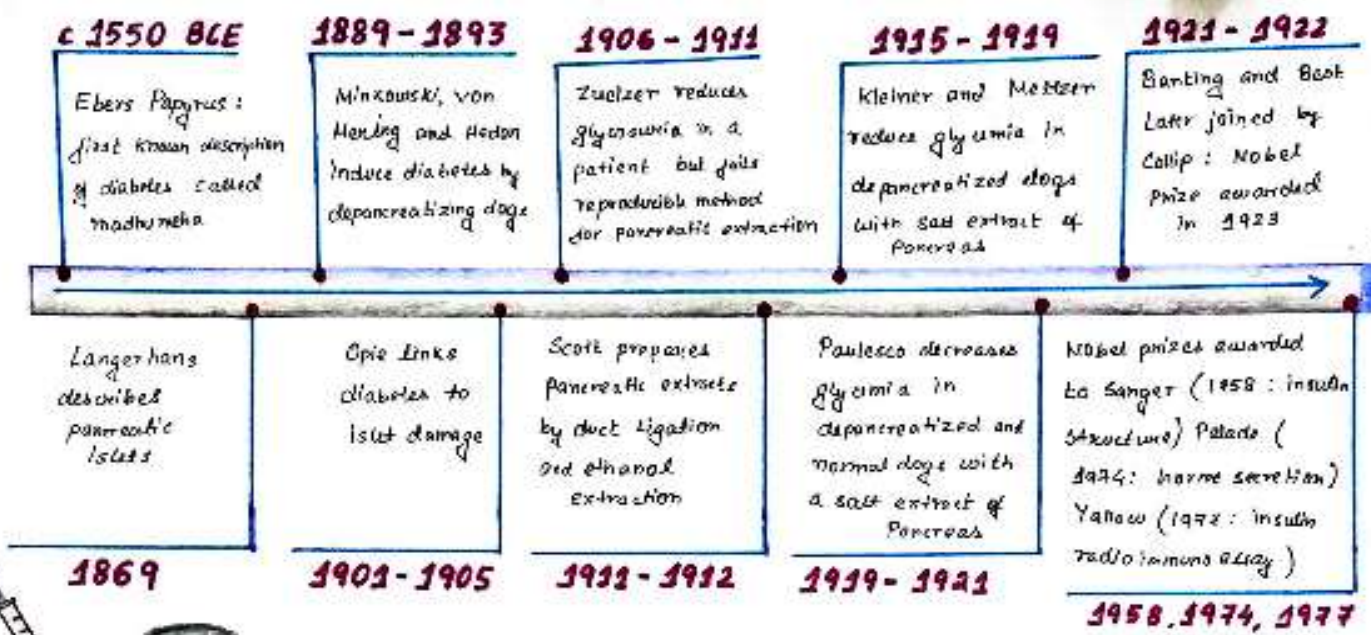 c 1550 BCE
Ebers Papyrus :
first known description
of diabetes called
madhumeha
1889 - 1893
Minkowski, von
Mering and Hedon
induce diabetes by
depancreatizing dogs
1906 - 1911
Zuelzer reduces
glycosuria in a
patient but fails
reproducible method
for pancreatic extraction
1915 - 1919
Kleiner and Meltzer
reduce glycemia in
depancreatized dogs
with salt extract of
Pancreas
1921 - 1922
Banting and Best
Later joined by
Collip : Nobel
Prize awarded
in 1923
Langerhans
describes
pancreatic
islets
1869
Opie links
diabetes to
islet damage
1901 - 1905
Scott prepares
pancreatic extracts
by duct ligation
and ethanol
extraction
1911 - 1912
Paulesco decreases
glycemia in
depancreatized and
normal dogs with
a salt extract of
Pancreas
1919 - 1921
Nobel prizes awarded
to Sanger (1958 : insulin
structure) Palade (
1974: secretion)
Yallow (1977 : insulin
radioimmuno assay)
1958, 1974, 1977